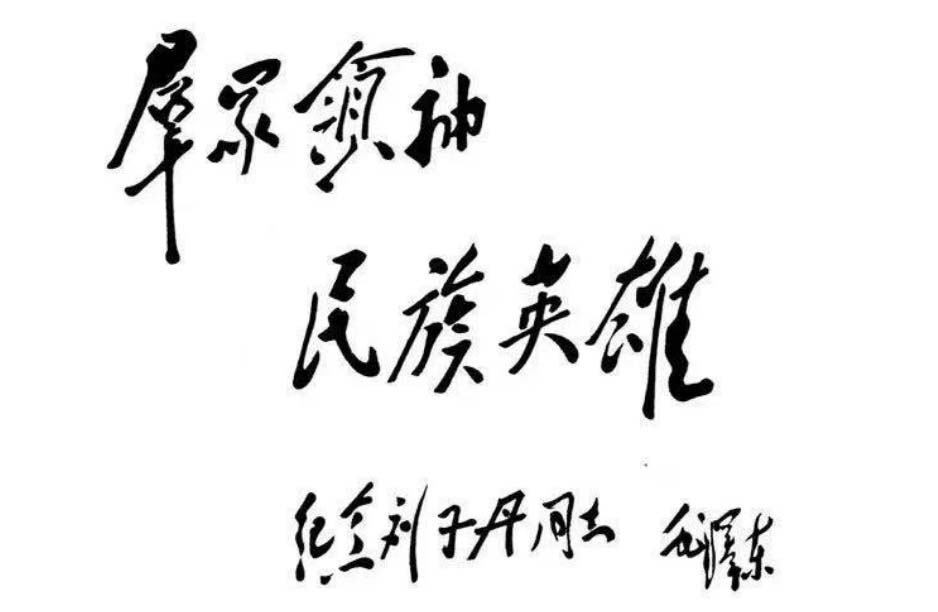 羣眾領袖
民族英雄
紀念刘子丹同志 毛澤東